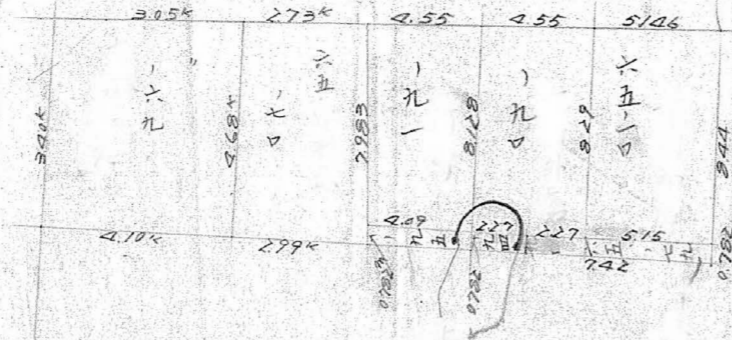 3.05k 2.73k 4.55 4.55 5.146
一六九
一七〇
六五
一九一
一九〇
六五一〇
3.40k
4.68k
7.983
8.128
8.29
8.44
4.10k 2.99k 4.09 2.27 2.27 5.15
一九五
一九四
7.42
0.782
0.782
0.782